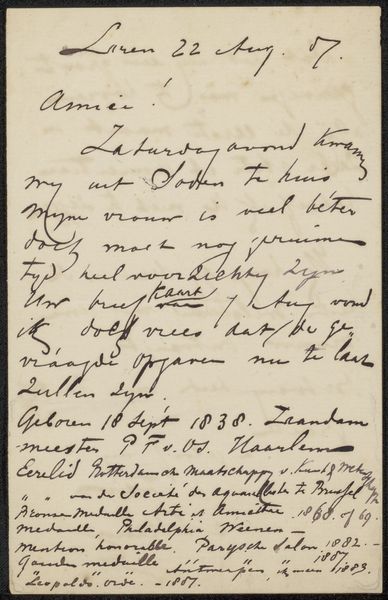 Laren 22 Aug. 87.
Amice!
Zaturdag avond kwamen
wij uit Soden te huis
Mijne vrouw is veel beter
doch moet nog geruime
tijd heel voorzichtig zijn
Uw brief kaart van 7 Aug vond
ik doch vrees dat de ge-
vraagde opgaven nu te laat
zullen zijn.
Geboren 18 Sept 1838. Zaandam
meester P F v. Os. Haarlem
Eerelid Rotterdamsche Maatschappij v. Kunst
" " van de Société des Aquarellistes te Brussel
Bronze Medaille Arti et Amicitiae. 1868 of 69.
medaille Philadelphia Weenen -
mention honorable. Parysche Salon. 1882. -
Gouden medaille Antwerpen 1883
"Leopolds" orde. - 1887.